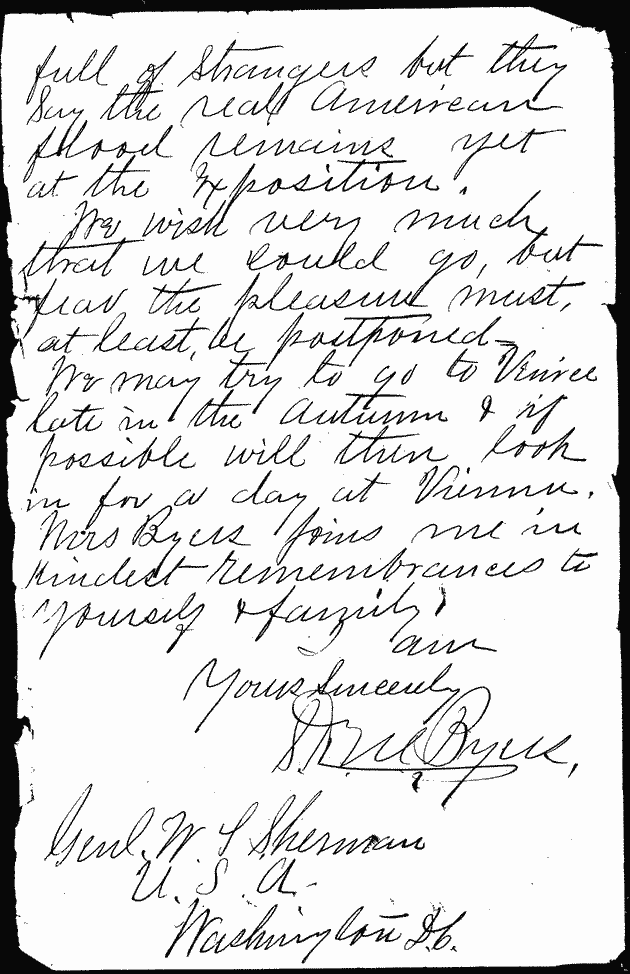 full of strangers but they
say the real American
flood remains yet
at the Exposition.
We wish very much
that we could go, but
fear the pleasure must,
at least, be postponed—
We may try to go to Venice
late in the Autumn & if
possible will then look
in for a day at Vienna.
Mrs Byers joins me in
kindest remembrances to
yourself & family.
I am
Yours Sincerely
S. H. M. Byers,
Genl. W. T. Sherman
U. S. A.
Washington D.C.